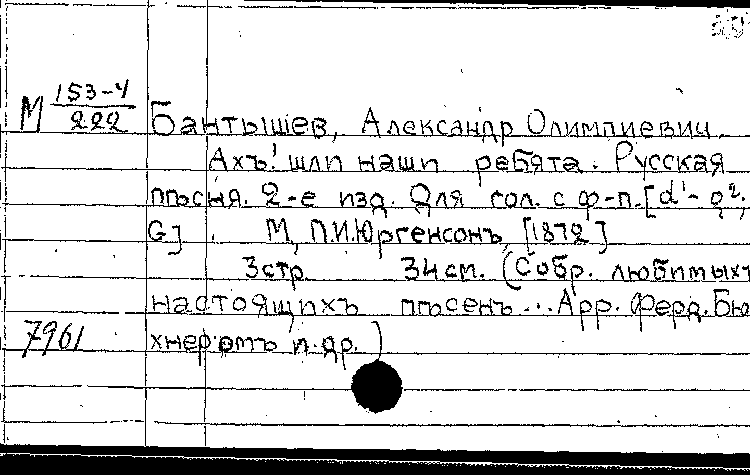 М 153-4/222
Бантышев, Александр Олимпиевич.
Ахъ! шли наши ребята. Русская
пѣсня. 2-е изд. Для гол. с ф-п. [d¹-g²;
G] М, П.И.Юргенсонъ, [1872]
3стр. 34см. (Собр. любимыхъ
настоящихъ пѣсенъ... Арр. Ферд. Бю
7961 хнеромъ и др.)